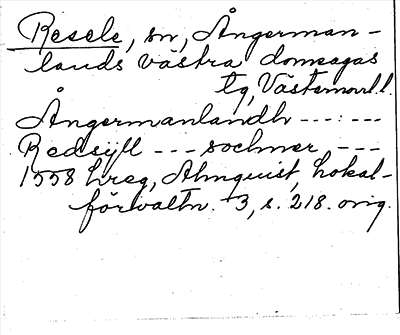 Resele, sn, Ångerman-
lands västra domsagas
tg, Västernorrl.l.
Ångermanlandh ---:---
Redsijll --- sochner ---
1558 hreg, Almquist, Lokal-
förvaltn. 3, s. 218. orig.